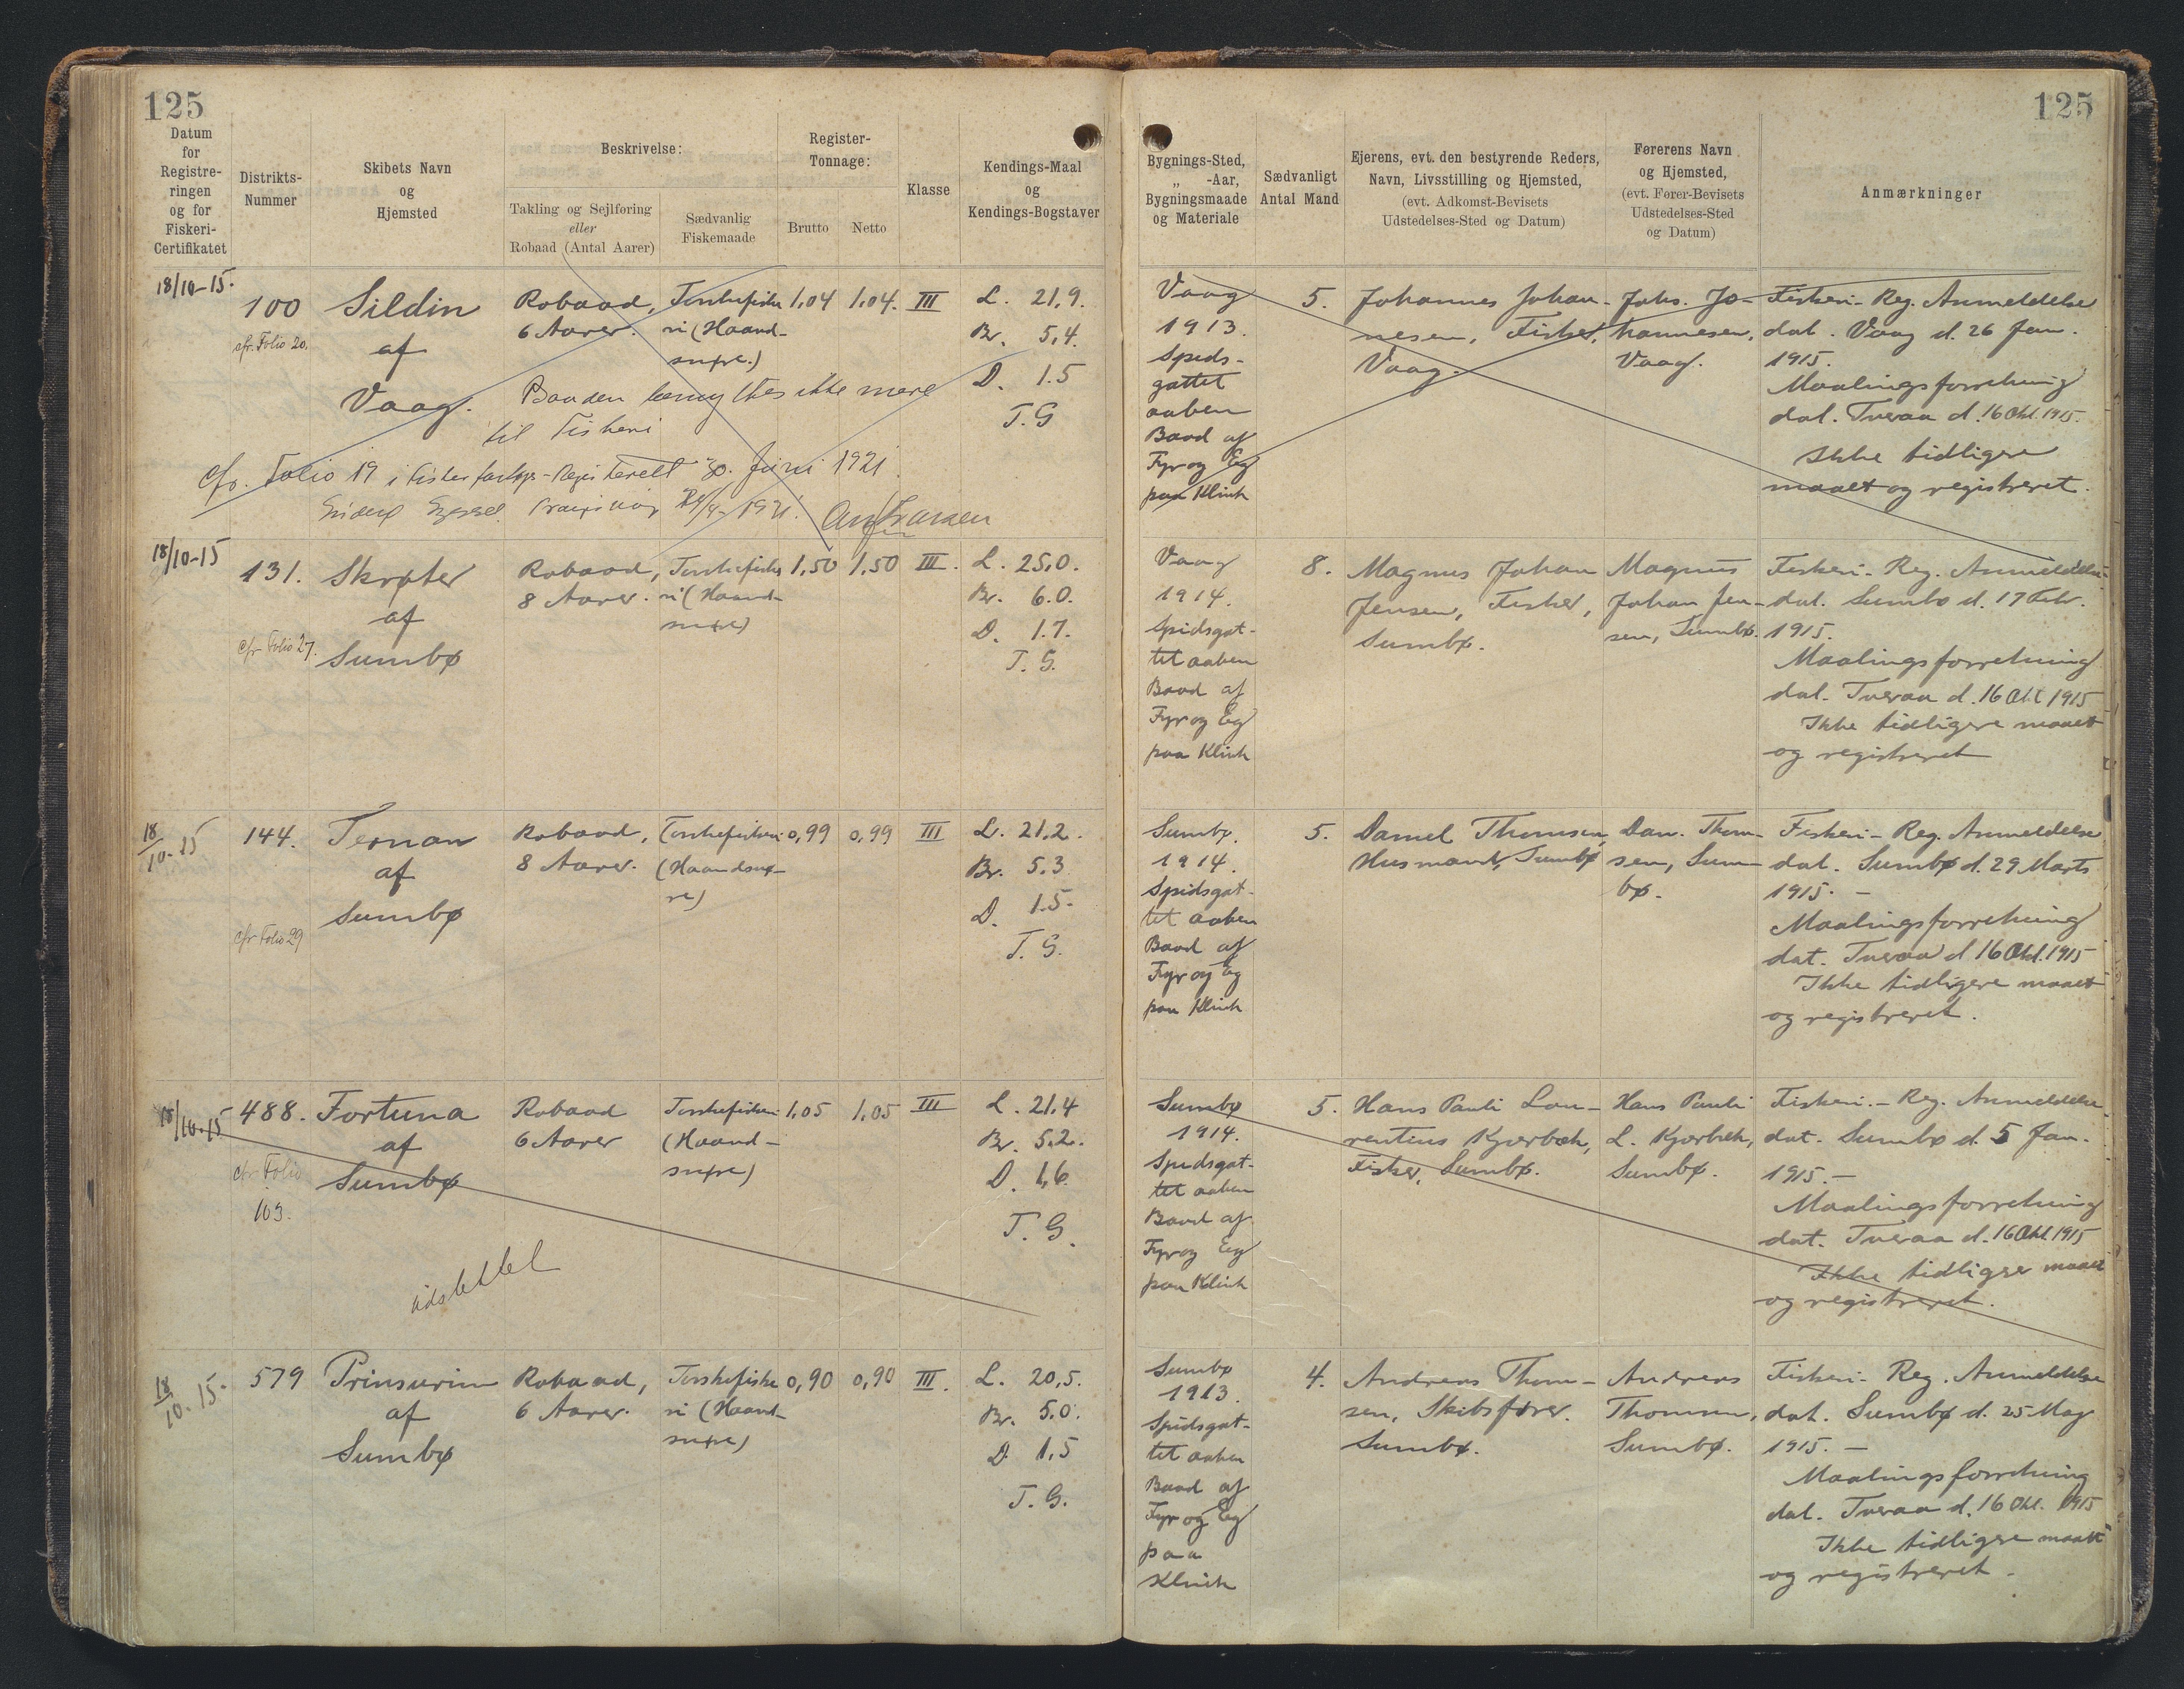 125
Datum
for
Registre-
ringen
og for
Fiskeri-
Certifikatet
Distrikts-
Nummer
Skibets Navn
og
Hjemsted
Beskrivelse:
Takling og Sejlføring
eller
Robaad (Antal Aarer)
Sædvanlig
Fiskemaade
Register-
Tonnage:
Brutto
Netto
Klasse
Kendings-Maal
og
Kendings-Bogstaver
18/10-15.
100
cfr. Folio 20.
Sildin
af
Vaag.
Robaad,
6 Aarer.
Torskefiske
ri (Haand-
snøre.)
1,04
1,04.
III
L. 21,9.
Br. 5,4.
D. 1.5
T. G
Baaden benyttes ikke mere
til Fiskeri
cfr. Folio 19 i Fiskerfartøjs-Registeret 30. Juni 1921.
1921.
18/10-15
131.
cfr Folio 27.
Skrøter
af
Sumbø
Robaad,
8 Aarer.
Torskefiske
ri (Haand-
snøre)
1,50
1,50
III.
L. 25,0.
Br. 6.0.
D. 1.7.
T. G.
18/10-15
144.
cfr Folio 29
Ternan
af
Sumbø
Robaad,
8 Aarer.
Torskefiskeri
(Haandsnø-
re)
0,99
0,99
III
L. 21,2.
Br. 5.3
D. 1.5.
T. G.
18/10-15
488.
cfr Folio
103.
Fortuna
af
Sumbø
Robaad
6 Aarer
Torskefiskeri
(Haand-
snøre)
1,05
1,05
III
L. 21,4
Br. 5.2.
D. 1,6.
T. G.
udslettet
18/10. 15.
579
Prinsurin
af
Sumbø
Robaad,
6 Aarer.
Torskefiske
ri (Haand-
snøre)
0,90
0,90
III.
L. 20,5.
Br. 5.0.
D 1,5
T. G.
125
Bygnings-Sted,
„ -Aar,
Bygningsmaade
og Materiale
Sædvanligt
Antal Mand
Ejerens, evt. den bestyrende Reders,
Navn, Livsstilling og Hjemsted,
(evt. Adkomst-Bevisets
Udstedelses-Sted og Datum)
Førerens Navn
og Hjemsted,
(evt. Fører-Bevisets
Udstedelses-Sted
og Datum)
Anmærkninger
Vaag
1913.
Spids-
gattet
aaben
Baad af
Fyr og Eg
paa Klink
5.
Johannes Johan-
nesen, Fisker,
Vaag.
Johs. Jo-
hannesen,
Vaag.
Fiskeri-Reg. Anmeldelse
dat. Vaag d. 26 Jan.
1915.
Maalingsforretning
dat. Tveraa d. 16 Okt. 1915.
Ikke tidligere
maalt og registreret.
Vaag
1914.
Spidsgat-
tet aaben
Baad af
Fyr og Eg
paa Klink
8.
Magnus Johan
Jensen, Fisker,
Sumbø.
Magnus
Johan Jen-
sen, Sumbø.
Fiskeri-Reg. Anmeldelse
dat. Sumbø d. 17 Febr.
1915.
Maalingsforretning
dat. Tveraa d. 16 Okt 1915
Ikke tidligere maalt
og registreret
Sumbø.
1914.
Spidsgat-
tet aaben
Baad af
Fyr og Eg
paa Klink
5.
Daniel Thomsen,
Husmand, Sumbø
Dan. Thom-
sen, Sum-
bø.
Fiskeri-Reg. Anmeldelse
dat. Sumbø d. 29 Marts
1915. —
Maalingsforretning
dat. Tveraa d 16 Okt. 1915
Ikke tidligere maalt
og registreret.
Sumbø
1914.
Spidsgat-
tet aaben
Baad af
Fyr og Eg
paa Klink
5.
Hans Pauli Lau-
rentius Kjærbæk,
Fisker, Sumbø.
Hans Pauli
L. Kjærbæk,
Sumbø.
Fiskeri-Reg. Anmeldelse
dat. Sumbø d. 5 Jan.
1915. —
Maalingsforretning
dat. Tveraa d. 16 Okt. 1915
Ikke tidligere maalt
og registreret.
Sumbø
1913.
Spidsgat-
tet aaben
Baad af
Fyr og Eg
paa
Klink
4.
Andreas Thom-
sen, Skibsfører.
Sumbø.
Andreas
Thomsen,
Sumbø.
Fiskeri-Reg. Anmeldelse
dat. Sumbø d. 25 Maj
1915. —
Maalingsforretning
dat. Tveraa d. 16 Okt. 1915
Ikke tidligere maalt
og registreret.